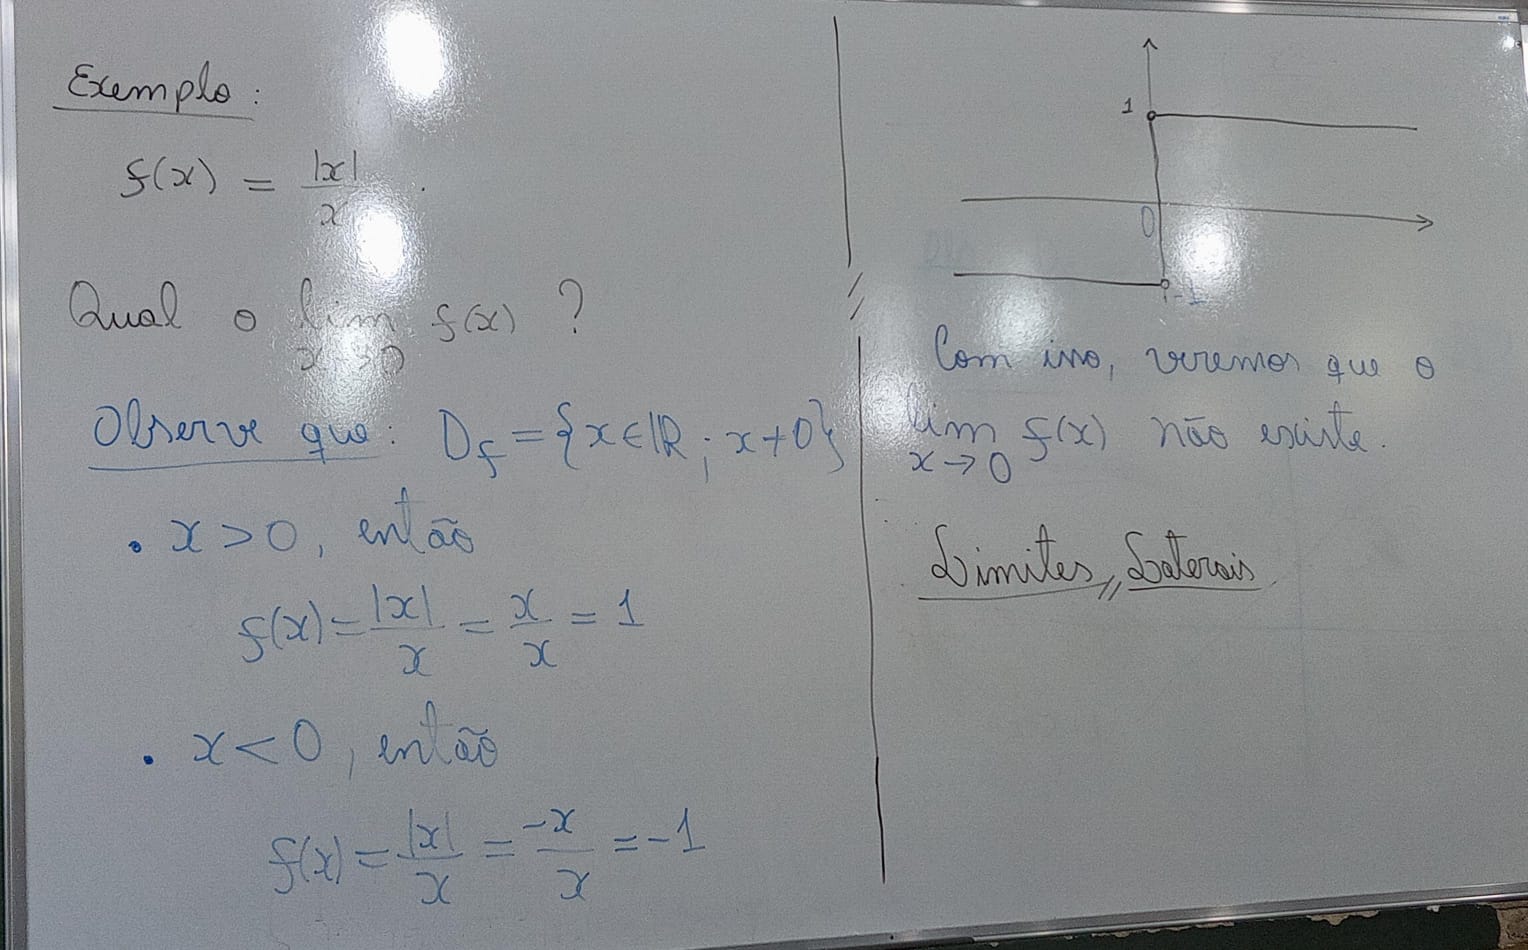 Exemplo:
f(x) = |x|/x .
Qual o lim x→0 f(x) ?
Observe que: D_f = {x ∈ ℝ ; x ≠ 0}
• x > 0, então
f(x) = |x|/x = x/x = 1
• x < 0, então
f(x) = |x|/x = -x/x = -1
1
0
-1
Com isso, veremos que o
lim x→0 f(x) não existe.
Limites Laterais